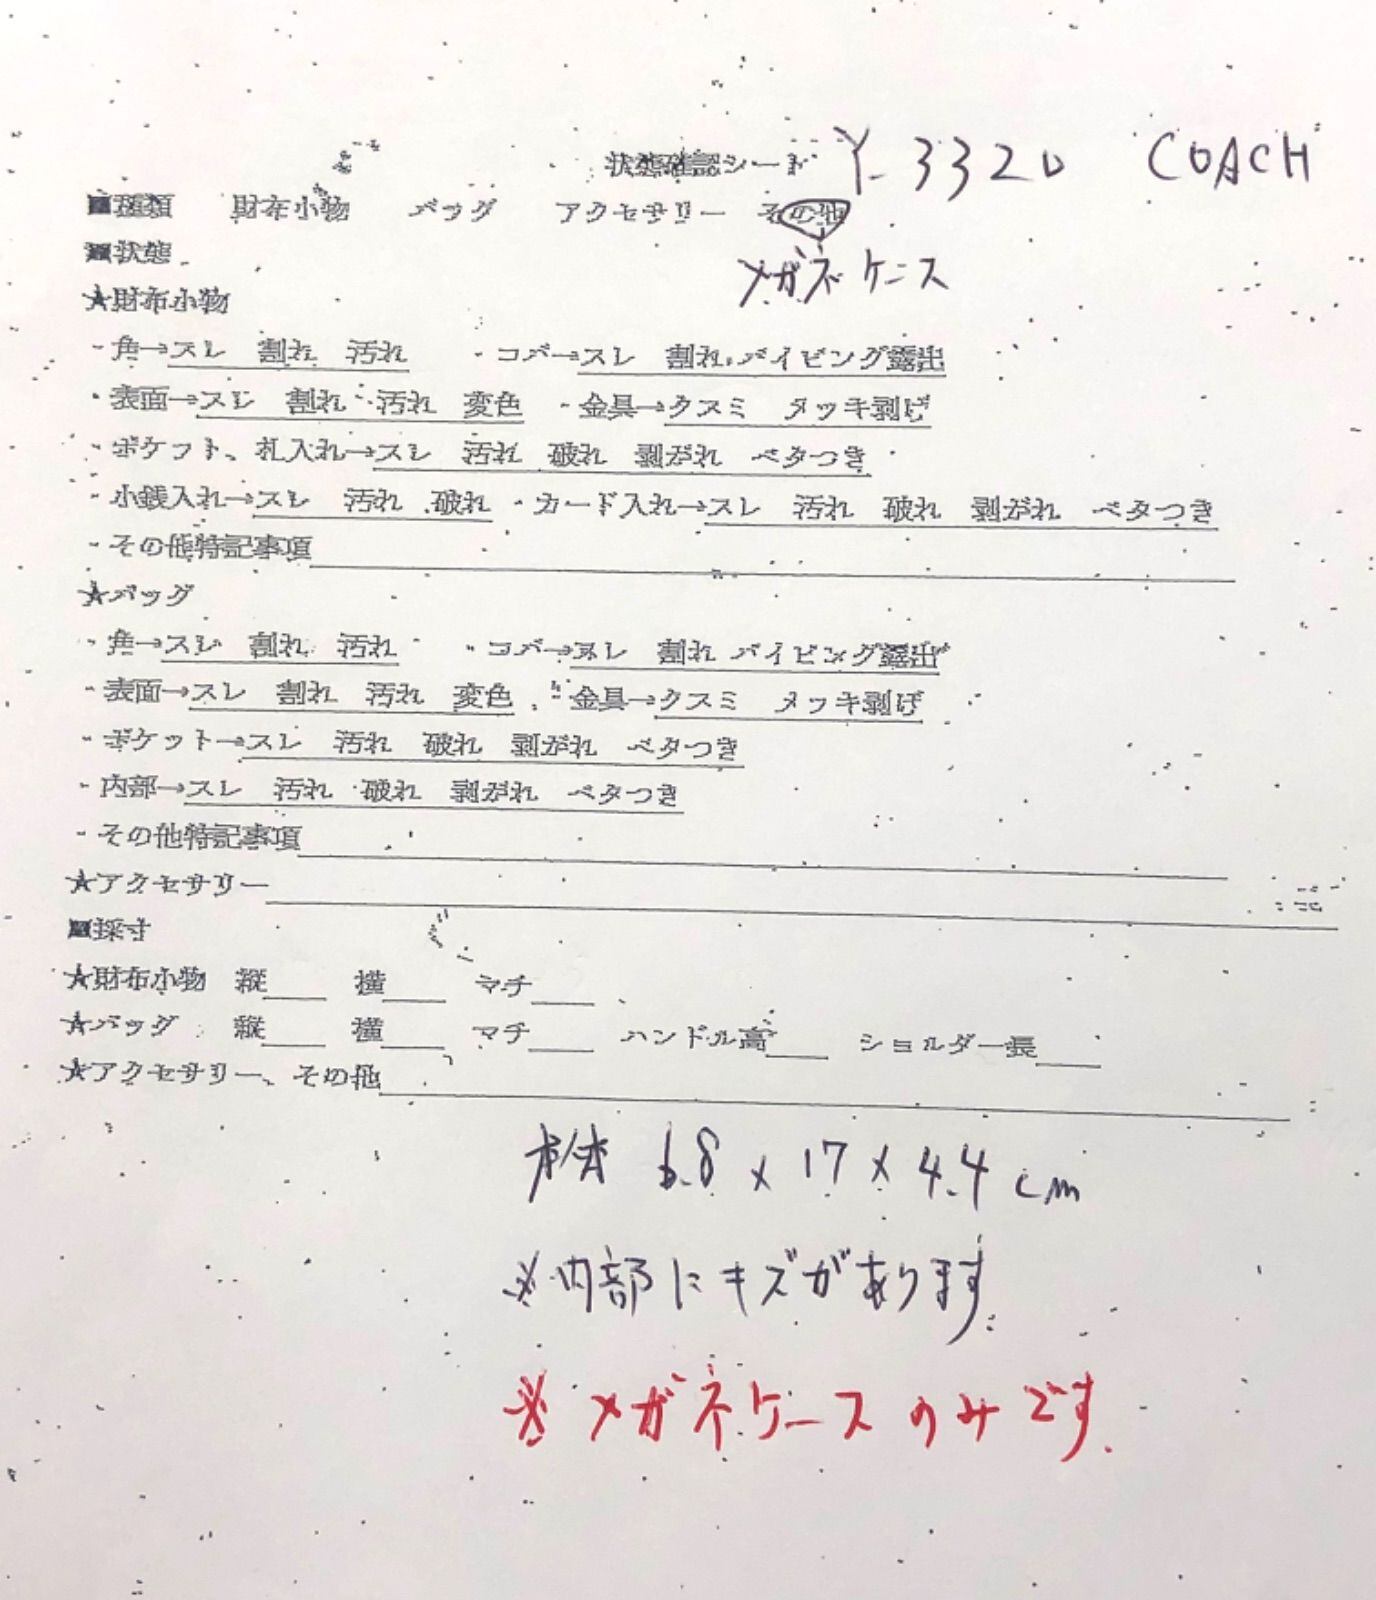 状態確認シート Y-3320 COACH
■種類 財布小物 バッグ アクセサリー その他
メガネケース
■状態
★財布小物
・角→スレ 割れ 汚れ ・コバ→スレ 割れ パイピング露出
・表面→スレ 割れ 汚れ 変色 ・金具→クスミ メッキ剥げ
・ポケット、札入れ→スレ 汚れ 破れ 剥がれ ベタつき
・小銭入れ→スレ 汚れ 破れ ・カード入れ→スレ 汚れ 破れ 剥がれ ベタつき
・その他特記事項
★バッグ
・角→スレ 割れ 汚れ ・コバ→スレ 割れ パイピング露出
・表面→スレ 割れ 汚れ 変色 ・金具→クスミ メッキ剥げ
・ポケット→スレ 汚れ 破れ 剥がれ ベタつき
・内部→スレ 汚れ 破れ 剥がれ ベタつき
・その他特記事項
★アクセサリー
■採寸
★財布小物 縦 横 マチ
★バッグ 縦 横 マチ ハンドル高 ショルダー長
★アクセサリー、その他
本体 6.8 x 17 x 4.4 cm
※内部にキズがあります。
※メガネケースのみです。